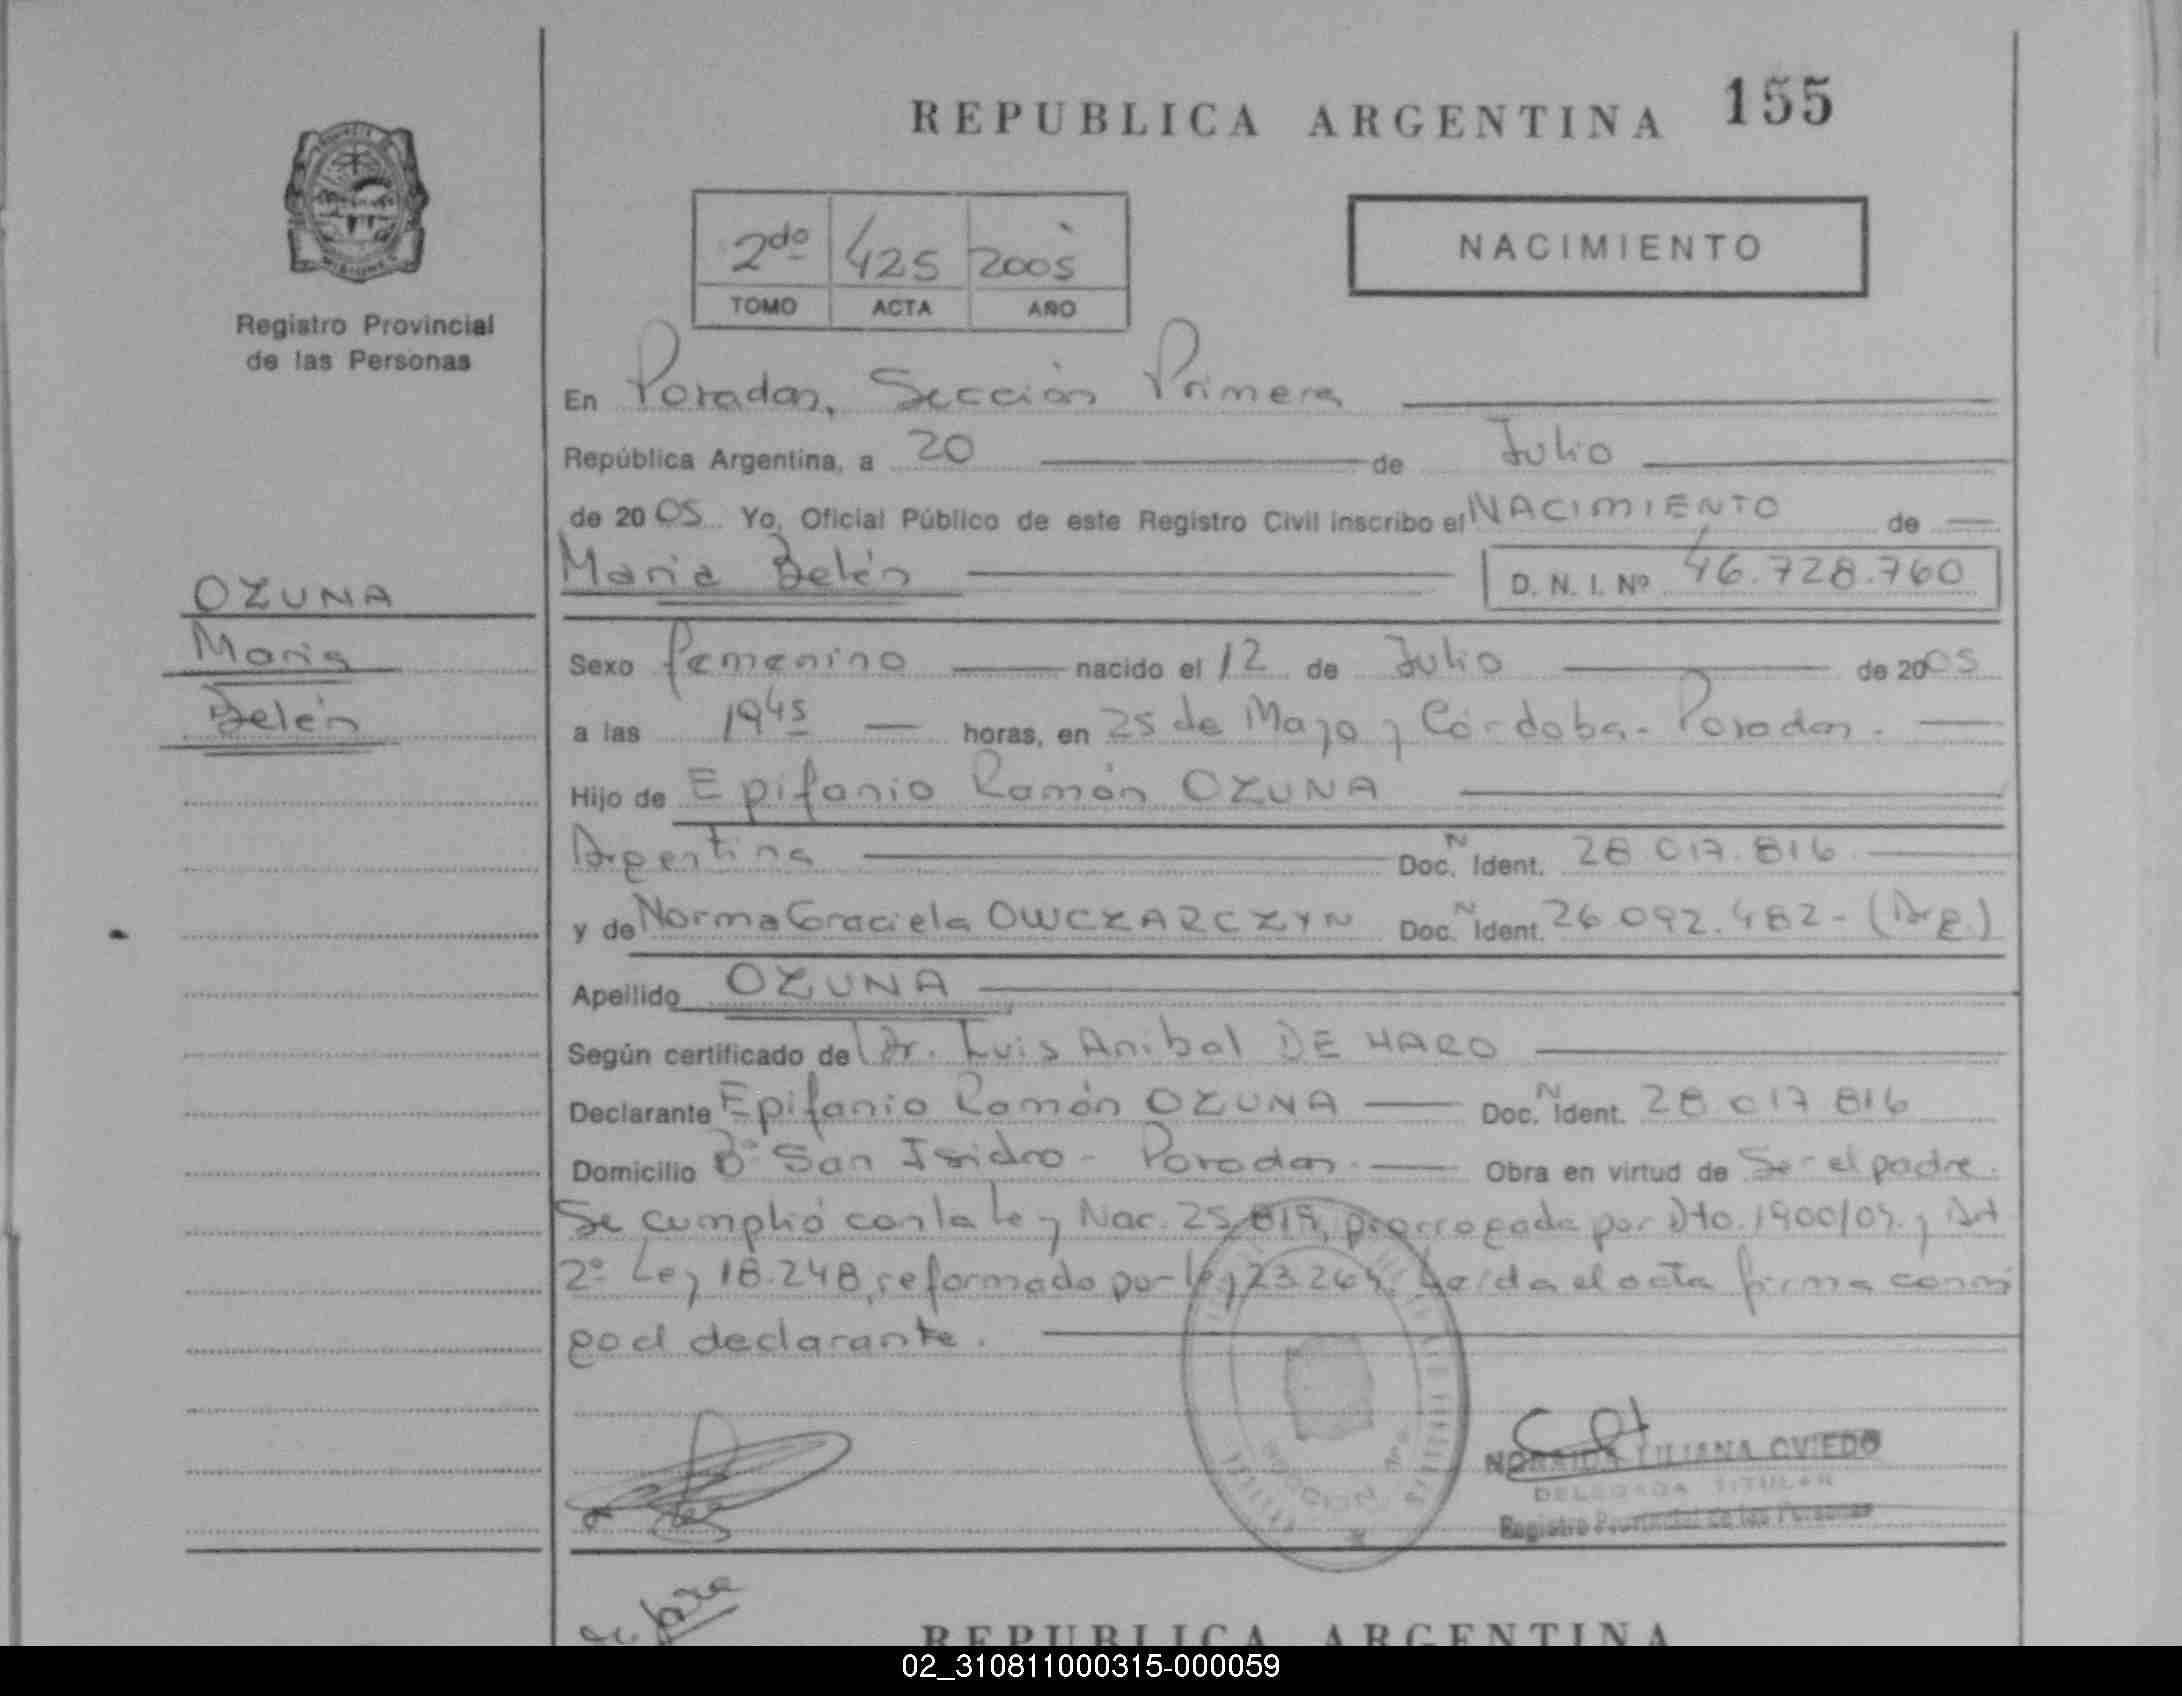 REPUBLICA ARGENTINA 155
2do 425 2005
TOMO ACTA AÑO
NACIMIENTO
MISIONES
Registro Provincial
de las Personas
En Posadas, Sección Primera
República Argentina, a 20 de Julio
de 2005 Yo, Oficial Público de este Registro Civil inscribo el NACIMIENTO de
Maria Belén D. N. I. Nº 46.728.760
OZUNA
Maria
Belén
Sexo femenino nacido el 12 de Julio de 2005
a las 19 45 horas, en 25 de Mayo y Córdoba - Posadas.
Hijo de Epifanio Ramón OZUNA
Argentina Doc. N Ident. 28.017.816
y de Norma Graciela OWCZARCZYN Doc. N Ident. 26.092.482 - (Arg.)
Apellido OZUNA
Según certificado de Dr. Luis Anibal DE HARO
Declarante Epifanio Ramón OZUNA Doc. N Ident. 28 017 816
Domicilio Bº San Isidro - Posadas. Obra en virtud de Ser el padre.
Se cumplió con la Ley Nac. 25.819, prorrogada por Dto. 1900/04. y Art
2º Ley 18.248, reformado por ley 23.264. Leída el acta firma conmi
go el declarante.
LILIANA OVIEDO
DELEGADA TITULAR
Registro Provincial de las Personas
REPUBLICA ARGENTINA
02_310811000315-000059